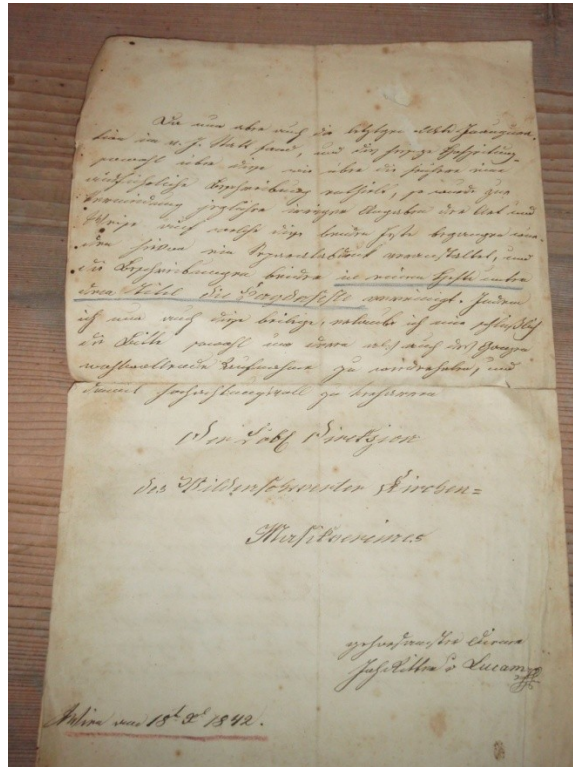 Da nun aber auch die letztere
tion im v. J. Statt fand, und
sowohl über diese wie über die frühere eine
ausführliche Beschreibung enthielt, so wurde zur
Vermeidung jeglicher irrigen Angaben der Art und
Weise auf welche diese beiden Feste begangen wur-
den hievon ein Separatabdruck veranstaltet, und
die Beschreibungen beider in einem Hefte unter
dem Titel die vereinigt. Indem
ich nun auch diese beilege, erlaube ich mir schlüßlich
die Bitte sowohl um deren als auch des Ganzen
wohlwollende Aufnahme zu wiederholen, und
damit hochachtungsvoll zu beharren
Der Löbl Direktion
des Wildenschwerter Kirchen=
Musikvereines
gehorsamster Diener
Joh Ritter v Lucam
Wien am 18t Xb 1842.